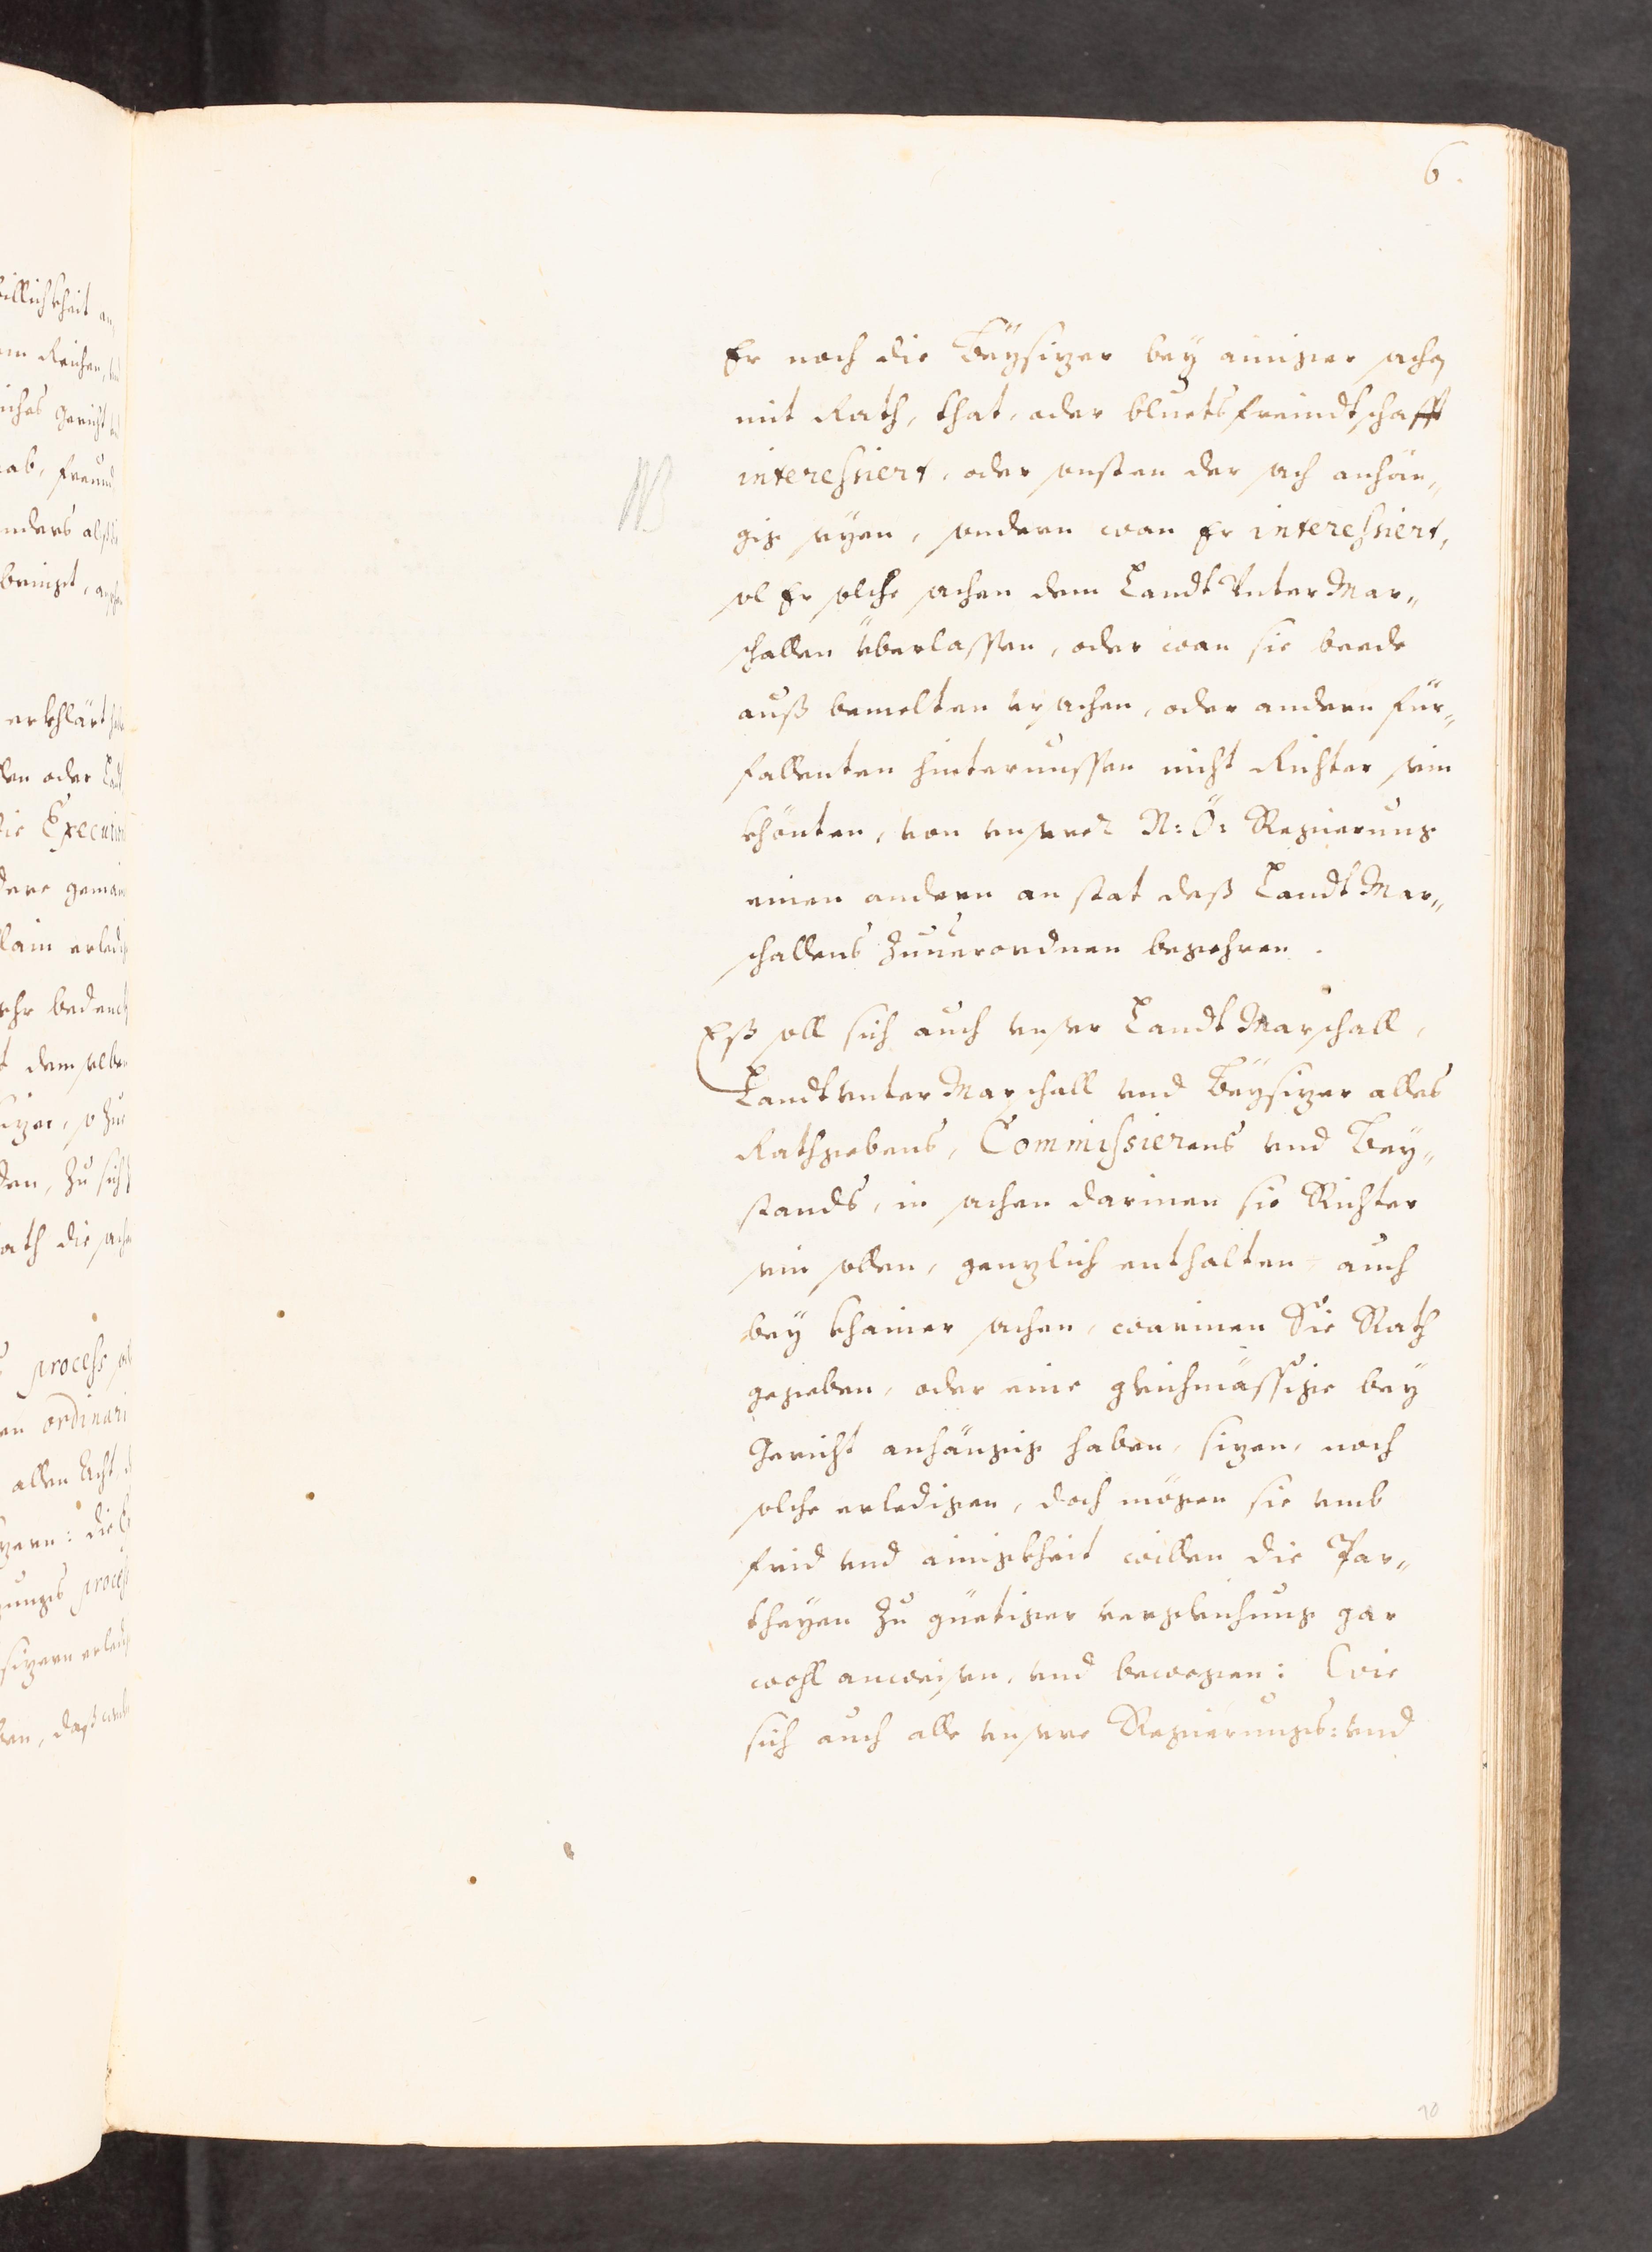 6.
Er noch die Beÿsizer beÿ ainiger sachen
mit Rath, that, oder bluetsfreindtschafft
interessiert, oder sonsten der sach anhän„
NB
gig seyen, sondern wan Er interessiert,
sol Er solche sachen dem Landt Vnter Mar„
schallen überlassen, oder wan sie beede
auß bemelten vrsachen, oder andern für„
fallenten hinternussen nicht Richter sein
khönten, von vnserer N: Ö: Regierung
einen andern an stat deß Landt Mar„
schallens zuuerordnen begehren.
Eß soll sich auch vnser Landt Marschall,
Landt vnter Marschall vnd Beÿsizer alles
Rathgebens, Commissierens vnd Beÿ„
stands, in sachen darinen sie Richter
sein sollen, genzlich enthalten, auch
beÿ khainer sachen, warinen Sie Rath
gegeben, oder eine gleichmässige beÿ
Gericht anhängig haben, sizen, noch
solche erledigen, doch mögen sie vmb
frid vnd ainigkheit willen die Par„
theyen zu güetiger vergleichung gar
wohl anweisen, vnd bewegen: Wie
sich auch alle vnsere Regierungs: vnd
10